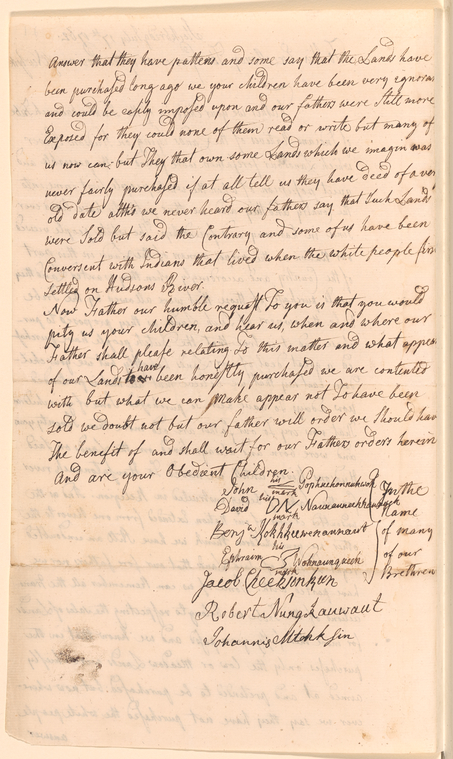 Answer that they have pattens and some say that the Lands have
been purchased long ago we your children have been very egnoran
and could be easily imposed upon and our fathers were Still more
Exposed for they could none of them read or write but many of
us now can but They that own some Lands which we imagin was
never fairly purchased if at all tell us they have deed of a ver
old date altho we never heard our fathers say that Such Lands
were Sold but said the Contrary and some of us have been
Conversent with Indians that lived when the white people firs
Settled on Hudsons River.
Now Father our humble request To you is that you would
pity us your Children, and hear us, when and where our
Father shall please relating To this matter and what appea
of our Lands to have been honestly purchased we are contented
with but what we can Make appear not To have been
sold we doubt not but our father will order we Should hav
The benefit of and shall wait for our Fathers orders herein
And are your Obedient Children
John his mark
David his mark
Benjn Kokhkewenaunaut
Ephraim his mark
In the
Name
of many
of our
Brethren
Jacob Cheeksunkun
Robert Nungkauwaut
Johannis Mtohksin